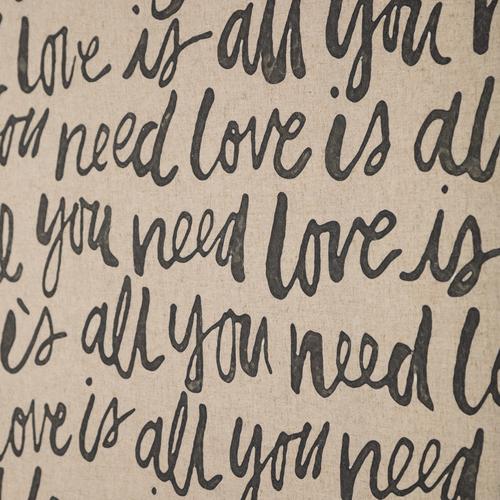 love is all you
you need love is all
you need love is
is all you need
love is all you need